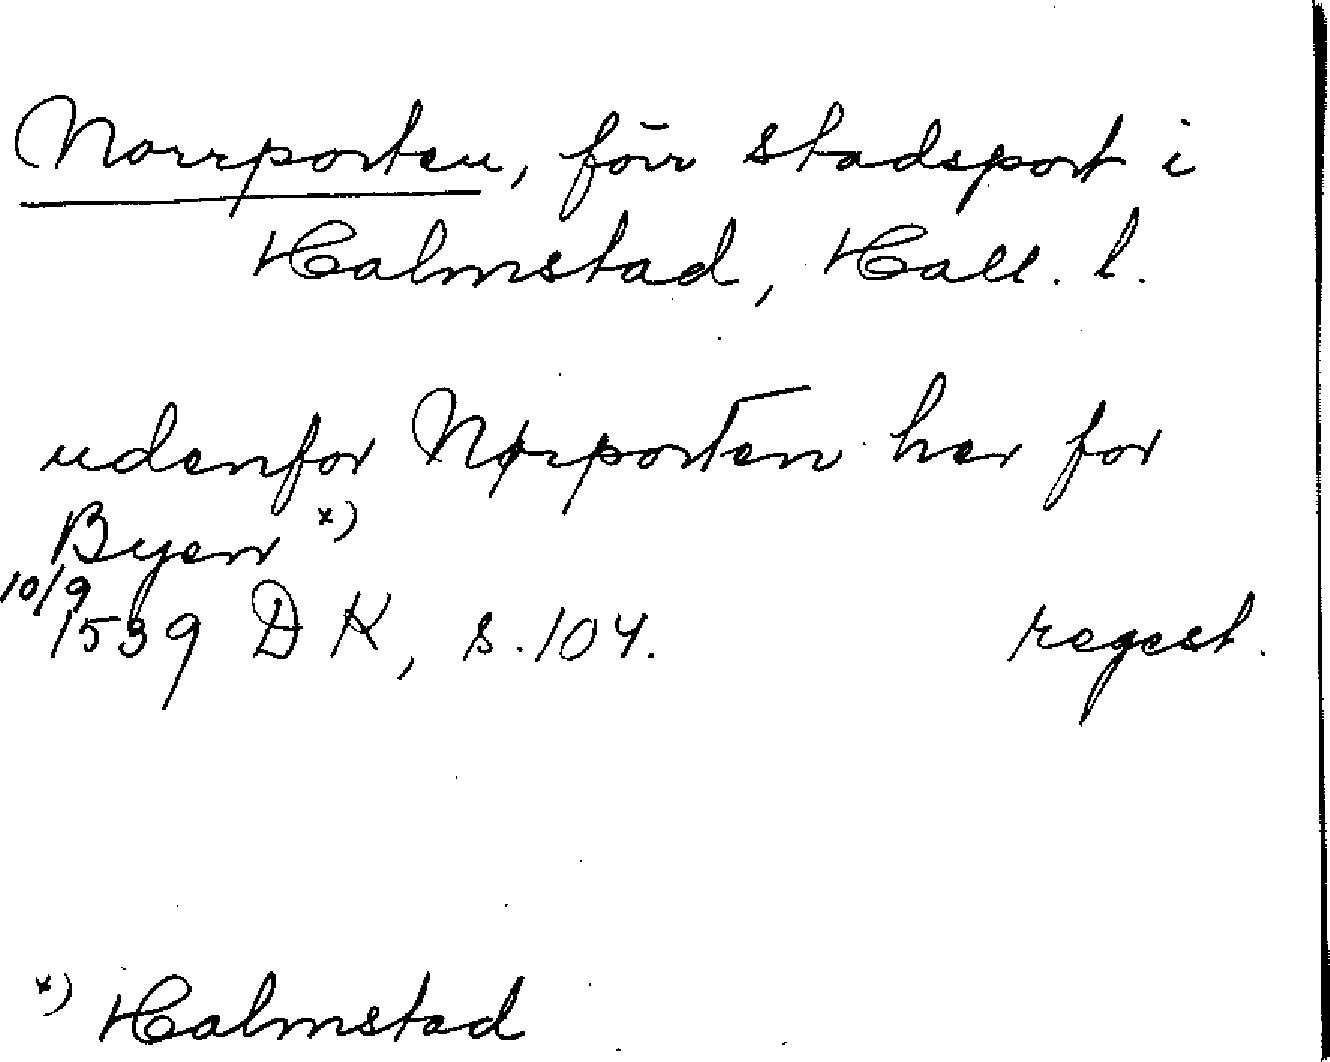 Norrporten, förr stadsport i
Halmstad, Hall. l.
udenfor Nørporten her for
Byen x)
10/9
1539 DK, s. 104. regest.
x) Halmstad